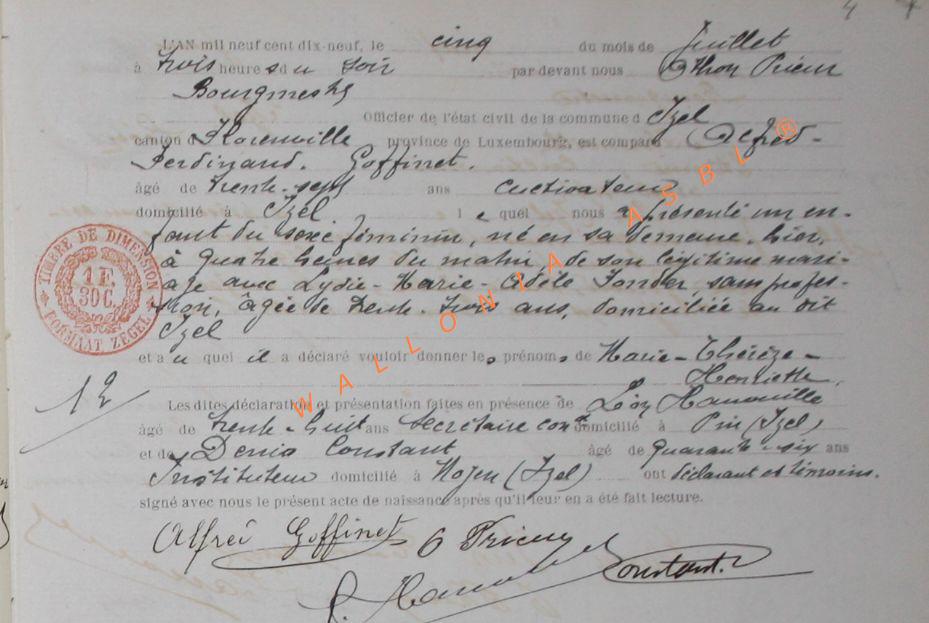 4
L'AN mil neuf cent dix-neuf, le cinq du mois de Juillet
à trois heures du soir par devant nous Othon Prieur
Bourgmestre
Officier de l'état civil de la commune d'Izel
canton d Florenville province de Luxembourg, est comparu Alfred-
Ferdinand. Goffinet.
âgé de trente-sept ans cultivateur
domicilié à Izel. lequel nous a présenté un en-
fant du sexe féminin, né en sa demeure, hier,
à quatre heures du matin, de son légitime mari-
age avec Lydie-Marie-Adèle sans profes-
sion, âgée de trente-trois ans, domiciliée au dit
Izel
et a u quel il a déclaré vouloir donner les prénoms de Marie-Thérèze-
Henriette.
12
Les dites déclaration et présentation faites en présence de Léon
âgé de trente-huit ans Secrétaire com. domicilié à Pin (Izel)
et de Denis Constant âgé de quarante-six ans
Instituteur domicilié à Moyen (Izel) ont déclarant et témoins.
signé avec nous le présent acte de naissance après qu'il leur en a été fait lecture.
Alfred Goffinet O Prieur
Constant.
TIMBRE DE DIMENSION
1 F. 30 C.
FORMAAT ZEGEL
WALLONIA ASBL ®